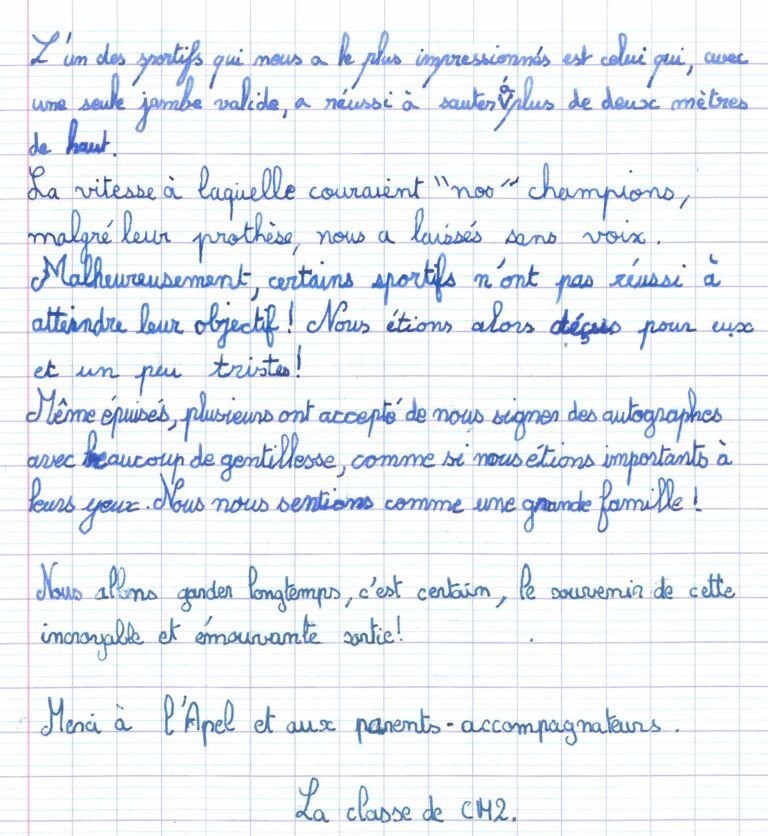 L'un des sportifs qui nous a le plus impressionnés est celui qui, avec
une seule jambe valide, a réussi à sauter à plus de deux mètres
de haut.
La vitesse à laquelle couraient "nos" champions,
malgré leur prothèse, nous a laissés sans voix.
Malheureusement, certains sportifs n'ont pas réussi à
atteindre leur objectif! Nous étions alors déçus pour eux
et un peu tristes!
Même épuisés, plusieurs ont accepté de nous signer des autographes
avec beaucoup de gentillesse, comme si nous étions importants à
leurs yeux. Nous nous sentions comme une grande famille!
Nous allons garder longtemps, c'est certain, le souvenir de cette
incroyable et émouvante sortie!
Merci à l'Apel et aux parents-accompagnateurs.
La classe de CM2.